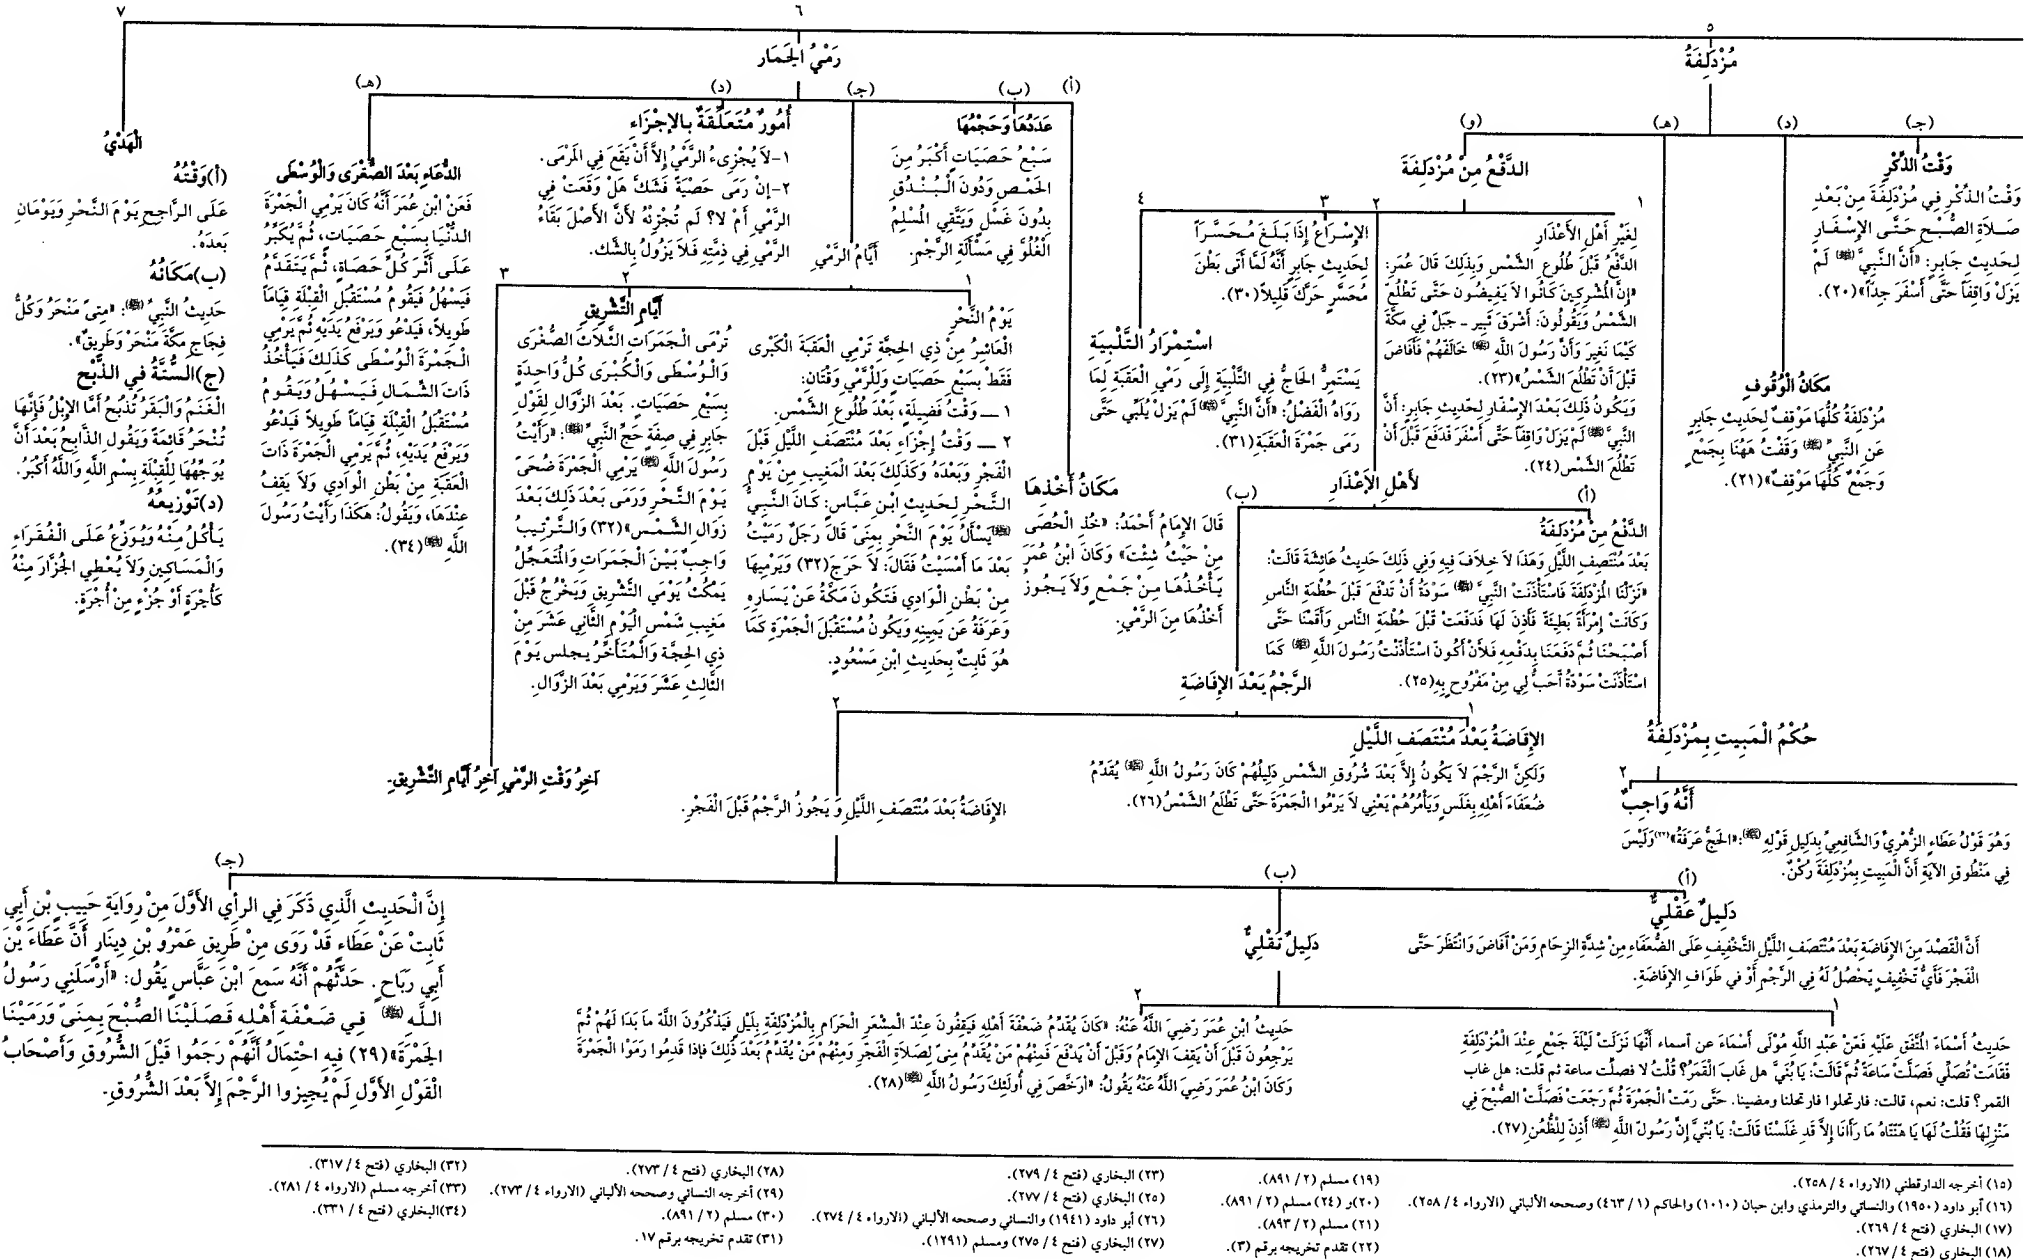 ٥
مُزْدَلِفَةُ
(جـ)
وَقْتُ الذِّكْرِ
وَقْتُ الذِّكْرِ فِي مُزْدَلِفَةَ مِنْ بَعْدِ
صَلاَةِ الصُّبْحِ حَتَّى الإِسْفَارِ
لِحَدِيثِ جَابِرٍ: «أَنَّ النَّبِيَّ ﷺ لَمْ
يَزَلْ وَاقِفاً حَتَّى أَسْفَرَ جِدّاً»(٢٠).
(د)
مَكَانُ الْوُقُوفِ
مُزْدَلِفَةُ كُلُّهَا مَوْقِفٌ لِحَدِيثِ جَابِرٍ
عَنِ النَّبِيِّ ﷺ وَقَفْتُ هَهُنَا بِجَمْعٍ
وَجَمْعٌ كُلُّهَا مَوْقِفٌ»(٢١).
(هـ)
حُكْمُ الْمَبِيتِ بِمُزْدَلِفَةُ
٢
أَنَّهُ وَاجِبٌ
وَهُوَ قَوْلُ عَطَاءٍ الزُّهْرِيِّ وَالشَّافِعِيِّ بِدَلِيلِ قَوْلِهِ ﷺ: «الحَجُّ عَرَفَةُ»(٢٢) وَلَيْسَ
فِي مَنْطُوقِ الآيَةِ أَنَّ الْمَبِيتِ بِمُزْدَلِفَةَ رُكْنٌ.
(و)
الدَّفْعُ مِنْ مُزْدَلِفَةَ
١
لِغَيْرِ أَهْلِ الأَعْذَارِ
الدَّفْعُ قَبْلَ طُلُوعِ الشَّمْسِ وَبِذَلِكَ قَالَ عُمَرِ:
«إِنَّ الْمُشْرِكِينَ كَانُوا لاَ يَفِيضُونَ حَتَّى تَطْلُعَ
الشَّمْسُ وَيَقُولُونَ: أَشْرَقَ ثَبِير ـ جَبَلٌ فِي مَكَّةَ
كَيْمَا نَغِيرَ وَأَنَّ رَسُولَ اللَّهِ ﷺ خَالَفَهُمْ فَأَفَاضَ
قَبْلَ أَنْ تَطْلُعَ الشَّمْسُ»(٢٣).
وَيَكُونُ ذَلِكَ بَعْدَ الإِسْفَارِ لِحَدِيثِ جَابِرٍ: أَنَّ
النَّبِيَّ ﷺ لَمْ يَزَلْ وَاقِفاً حَتَّى أَسْفَرَ فَدَفَعَ قَبْلَ أَنْ
تَطْلُعَ الشَّمْسِ(٢٤).
٢
لأَهْلِ الإِعْذَارِ
(أ)
الدَّفْعُ مِنْ مُزْدَلِفَةُ
بَعْدَ مُنْتَصِفِ اللَّيْلِ وَهَذَا لاَ خِلاَفَ فِيهِ وَفِي ذَلِكَ حَدِيثُ عَائِشَةَ قَالَتْ:
«نَزَلْنَا الْمُزْدَلِفَةَ فَاسْتَأْذَنَتْ النَّبِيَّ ﷺ سَوْدَةُ أَنْ تَدْفَعَ قَبْلَ حُطْمَةِ النَّاسِ
وَكَانَتْ إِمْرَأَةً بَطِيئَةً فَأَذِنَ لَهَا فَدَفَعَتْ قَبْلَ حُطْمَةِ النَّاسِ وَأَقَمْنَا حَتَّى
أَصْبَحْنَا ثُمَّ دَفَعْنَا بِدَفْعِهِ فَلأَنْ أَكُونَ اسْتَأْذَنْتُ رَسُولَ اللَّهِ ﷺ كَمَا
اسْتَأْذَنَتْ سَوْدَةُ أَحَبُّ لِي مِنْ مَفْرُوحٍ بِهِ(٢٥).
(ب)
الرَّجْمُ بَعْدَ الإِفَاضَةِ
١
الإِفَاضَةُ بَعْدَ مُنْتَصَفِ اللَّيْلِ
وَلَكِنَّ الرَّجْمَ لاَ يَكُونُ إِلاَّ بَعْدَ شُرُوقِ الشَّمْسِ دَلِيلُهُمْ كَانَ رَسُولُ اللَّهِ ﷺ يُقَدِّمُ
ضُعَفَاءَ أَهْلِهِ بِغَلَسٍ وَيَأْمُرُهُمْ يَعْنِي لاَ يَرْمُوا الْجَمْرَةَ حَتَّى تَطْلُعَ الشَّمْسُ(٢٦).
٢
الإِفَاضَةُ بَعْدَ مُنْتَصَفِ اللَّيْلِ وَ يَجُوزُ الرَّجْمُ قَبْلَ الْفَجْرِ.
(أ)
دَلِيلٌ عَقْلِيٌّ
أَنَّ الْقَصْدَ مِنَ الإِفَاضَةِ بَعْدَ مُنْتَصَفِ اللَّيْلِ التَّخْفِيفُ عَلَى الضُّعَفَاءِ مِنْ شِدَّةِ الزِحَامِ وَمَنْ أَفَاضَ وَانْتَظَرَ حَتَّى
الْفَجْرَ فَأَيُّ تَخْفِيفٍ يَحْصُلُ لَهُ فِي الرَّجْمِ أَوْ في طَوَافِ الإِفَاضَةِ.
(ب)
دَلِيلٌ نَقْلِيٌّ
١
حَدِيثُ أَسْمَاءَ الْمُتَّفَقِ عَلَيْهِ فَعَنْ عَبْدِ اللَّهِ مُوْلَى أَسْمَاءَ عن أسماء أَنَّهَا نَزَلَتْ لَيْلَةَ جَمْعٍ عِنْدَ الْمُزْدَلِفَةِ
فَقَامَتْ تُصَلِّي فَصَلَّتْ سَاعَةً ثُمَّ قَالَتْ: يَا بُنَيَّ هل غَابَ الْقَمَرُ؟ قُلْتُ لا فصلَّت ساعة ثم قلت: هل غاب
القمر؟ قلت: نعم، قالت: فارتحلوا فارتحلنا ومضينا. حَتَّى رَمَتْ الْجَمْرَةَ ثُمَّ رَجَعَتْ فَصَلَّتْ الصُّبْحَ فِي
مَنْزِلِهَا فَقُلْتُ لَهَا يَا هَنْتَاهُ مَا رَأَانَا إِلاَّ قَدِ غَلَسْنَا قَالَتْ: يَا بُنَيَّ إِنَّ رَسُولَ اللَّهِ ﷺ أَذِنَ لِلظُّعُنِ(٢٧).
٢
حَدِيثُ ابْنِ عُمَرَ رَضِيَ اللَّهُ عَنْهُ: «كَانَ يُقَدِّمُ ضَعْفَةَ أَهْلِهِ فَيَقِفُونَ عِنْدَ الْمِشْعَرِ الْحَرَامِ بِالْمُزْدَلِفَةِ بِلَيْلٍ فَيَذْكُرُونَ اللَّهَ ماَ بَدَا لَهُمْ ثُمَّ
يَرْجِعُونَ قَبْلَ أَنْ يَقِفَ الإِمَامُ وَقَبْلَ أَنْ يَدْفَعَ فَمِنْهُمْ مَنْ يُقَدِّمُ مِنىً لِصَلاَةِ الْفَجْرِ وَمِنْهُمْ مَنْ يُقَدِّمُ بَعْدَ ذَلِكَ فإذا قَدِمُوا رَمَوْا الْجَمْرَةَ
وَكَانَ ابْنُ عُمَرَ رَضِيَ اللَّهُ عَنْهُ يَقُولُ: «أرَخَّصَ فِي أُولَئِكَ رَسُولُ اللَّهِ ﷺ(٢٨).
(جـ)
إِنَّ الْحَدِيثَ الَّذِي ذَكَرَ فِي الرأْيِ الأَوَّلَ مِنْ رِوَايَةِ حَبِيبِ بْنِ أَبِي
ثَابِتْ عَنْ عَطَاءٍ قَدْ رَوَى مِنْ طَرِيقِ عَمْرُو بْنِ دِينَارٍ أَنَّ عَطَاءَ بْنَ
أَبِي رَبَاحٍ. حَدَّثَهُمْ أَنَّهُ سَمِعَ ابْنَ عَبَّاسٍ يَقُول: «أَرْسَلَنِي رَسُولُ
اللَّهِ ﷺ فِي ضَعْفَةِ أَهْلِهِ فَصَلَيْنَا الصُّبْحَ بِمِنىً وَرَمَيْنَا
الجَمْرَةَ»(٢٩) فِيهِ احْتِمَالُ أَنَّهُمْ رَجَمُوا قَبْلَ الشُّرُوقِ وَأَصْحَابُ
الْقَوْلِ الأَوَّلِ لَمْ يُجِيزوا الرَّجْمَ إِلاَّ بَعْدَ الشُّرُوقِ.
٣
الإِسْرَاعُ إِذَا بَلَغَ مُحَسَّراً
لِحَدِيثِ جَابِرٍ أَنَّهُ لَمَّا أَتَى بَطْنَ
مُحَسَّرٍ حَرَّكَ قَلِيلاً(٣٠).
٤
اسْتِمْرَارُ التَّلْبِيَةِ
يَسْتَمِرُّ الحَاجُّ فِي التَّلْبِيَةِ إِلَى رَمْيِ الْعَقَبَةِ لِمَا
رَوَاهُ الْفَضْلُ: «أَنَّ النَّبِيَّ ﷺ لَمْ يَزَلْ يُلَبِّي حَتَّى
رَمَى جَمْرَةَ الْعَقَبَةِ(٣١).
٦
رَمْيُ الجَمَار
(أ)
مَكَانُ أَخْذِهَا
قَالَ الإِمَامُ أَحْمَدُ: «خُذِ الْحُصَى
مِنْ حَيْثُ شِئْتَ» وَكَانَ ابْنُ عُمَرَ
يَأْخُذُهَا مِنْ جَمْعٍ وَلاَ يَجُوزُ
أَخْذُهَا مِنَ الرَّمْيِ.
(ب)
عَدَدُهَا وَحَجْمُهَا
سَبْعُ حَصَيَاتٍ أَكْبَرُ مِنَ
الحَمْصِ وَدُونَ الْبُنْدُقِ
بِدُونَ غَسْلٍ وَيَتَّقِي الْمُسْلِمُ
الْغُلُوَّ فِي مَسْأَلَةِ الرَّجْمِ.
(جـ)
أَيَّامُ الرَّمْيِ
١
يَوْمُ النَّحْرِ
الْعَاشِرُ مِنْ ذِي الحِجَّةِ تَرْمِي الْعَقَبَةَ الْكُبْرَى
فَقَطْ بِسَبْعِ حَصَيَاتٍ وَلِلرَّمْيِ وَقْتَانِ:
١ ـ وَقْتُ فَضِيلَةٍ، بَعْدَ طُلُوعِ الشَّمْسِ.
٢ ـ وَقْتُ إِجْزَاءٍ بَعْدَ مُنْتَصَفِ اللَّيْلِ قَبْلَ
الْفَجْرِ وَبَعْدَهُ وَكَذَلِكَ بَعْدَ الْمَغِيبِ مِنْ يَوْمِ
النَّحْرِ لِحَدِيثِ ابْنِ عَبَّاسٍ: كَانَ النَّبِيُّ
ﷺ يَسْأَلُ يَوْمَ النَّحْرِ بِمِنَى قَالَ رَجُلٌ رَمَيْتُ
بَعْدَ مَا أَمْسَيْتُ فَقَالَ: لاَ حَرَجَ(٣٢) وَيَرْمِيهَا
مِنْ بَطْنِ الْوَادِي فَتَكُونَ مَكَّةُ عَنْ يَسَارِهِ
وَعَرَفَةُ عَنِ يَمِينِهِ وَيَكُونُ مُسْتَقْبِلَ الْجَمْرَةِ كَمَا
هُوَ ثَابِتٌ بِحَدِيثِ ابْنِ مَسْعُودٍ.
٢
أَيَّامِ التَّشْرِيقِ
تُرْمَى الْجَمَرَاتِ الثَّلاَثَ الصُّغْرَى
وَالْوُسْطَى وَالْكُبْرَى كُلَّ وَاحِدَةٍ
بِسَبْعِ حَصَيَاتٍ. بَعْدَ الزَّوَالِ لِقَوْلِ
جَابِرٍ فِي صِفَةِ حَجِّ النَّبِيِّ ﷺ: «رَأَيْتُ
رَسُولَ اللَّهِ ﷺ يَرْمِي الْجَمْرَةَ ضُحَىً
يَوْمَ النَّحْرِ وَرَمَى بَعْدَ ذَلِكَ بَعْدَ
زَوَالِ الشَّمْسِ»(٣٢) وَالتَّرْتِيبُ
وَاجِبٌ بَيْنَ الْجَمَرَاتِ وَالْمُتَعَجِّلُ
يَمْكُثُ يَوْمَي التَّشْرِيقِ وَيَخْرُجُ قَبْلَ
مَغِيبِ شَمْسِ الْيَوْمِ الثَّانِي عَشَرَ مِنْ
ذِي الحِجَّةِ وَالْمُتَأَخِّرُ يجلس يَوْمَ
الثَّالِثِ عَشَرَ وَيَرْمِي بَعْدَ الزَّوَالِ.
٣
آخِرُ وَقْتِ الرَّمْيِ آخِرُ أَيَّامِ التَّشْرِيقِ.
(د)
أُمُورٌ مُتَعَلِّقَةٌ بِالإِجْزَاءِ
١-لاَ يُجْزِيءُ الرَّمْيُ إِلاَّ أَنْ يَقَعَ فِي الْمَرْمَى.
٢-إِنْ رَمَى حَصْبَةً فَشَكَّ هَلْ وَقَعَتْ فِي
الرَّمْيِ أَمْ لاَ؟ لَم تُجْزِئْهُ لأَنَّ الأَصْلَ بَقَاءُ
الرَّمْيِ فِي ذِمَّتِهِ فَلاَ يَزُولُ بِالشَّك.
(هـ)
الدُّعَاءِ بَعْدَ الصُّغْرَى وَالْوُسْطَى
فَعَنْ ابْنِ عُمَرَ أَنَّهُ كَانَ يَرْمِي الْجَمْرَةَ
الدُّنْيَا بِسَبْعِ حَصَيَاتٍ، ثُمَّ يُكَبِّرُ
عَلَى أَثَرِ كُلِّ حَصَاةٍ، ثُمَّ يَتَقَدَّمُ
فَيَسْهُلُ فَيَقُومُ مُسْتَقْبِلَ الْقِبْلَةِ قِيَاماً
طَوِيلاً، فَيَدْعُو وَيَرْفَعُ يَدَيْهِ ثُمَّ يَرْمِي
الْجَمْرَةَ الْوُسْطَى كَذَلِكَ فَيَأْخُذُ
ذَاتَ الشِّمَالِ فَيَسْهُلُ وَيَقُومُ
مُسْتَقْبِلُ الْقِبْلَةِ قِيَاماً طَوِيلاً فَيَدْعُو
وَيَرْفَعُ يَدَيْهِ، ثُمَّ يَرْمِي الْجَمْرَةَ ذَاتَ
الْعَقَبَةِ مِنْ بَطْنِ الْوَادِي وَلاَ يَقِفُ
عِنْدَهَا، وَيَقُولُ: هَكَذَا رَأَيْتُ رَسُولَ
اللَّهِ ﷺ(٣٤).
٧
الْهَدْيُ
(أ)وَقْتُهُ
عَلَى الرَّاجِحِ يَوْمَ النَّحْرِ وَيَوْمَانِ
بَعدَهُ.
(ب)مَكَانُهُ
حَدِيثُ النَّبِيِّ ﷺ: «مِنىً مَنْحَرُ وَكُلُّ
فِجَاجِ مَكَّةَ مَنْحَرُ وَطَرِيقٌ».
(ج)السُّنَّةُ فِي الذَّبْحِ
الْغَنَمُ وَالْبَقَرُ تُذْبَحُ أَمَّا الإِبْلُ فَإِنَّهَا
تُنْحَرُ قَائِمَةً وَيَقُولُ الذَّابِحُ بَعْدَ أَنَّ
يُوَجِّهُهَا لِلْقِبْلَةِ بِسْمِ اللَّهِ وَاللَّهُ أَكْبَرُ.
(د)تَوْزِيعُهُ
يَأْكُلُ مِنْهُ وَيُوَزِّعُ عَلَى الْفُقَرَاءِ
وَالْمَسَاكِينِ وَلاَ يُعْطِي الْجُزَّارَ مِنْهُ
كَأُجْرَةٍ أَوْ جُزْءٍ مِنْ أُجْرَةٍ.
(١٥) أخرجه الدارقطني (الارواء ٤ / ٢٥٨).
(١٦) أبو داود (١٩٥٠) والنسائي والترمذي وابن حبان (١٠١٠) والحاكم (١ / ٤٦٣) وصححه الألباني (الارواء ٤ / ٢٥٨).
(١٧) البخاري (فتح ٤ / ٢٦٩).
(١٨) البخاري (فتح ٤ / ٢٦٧).
(١٩) مسلم (٢ / ٨٩١).
(٢٠)و (٢٤) مسلم (٢ / ٨٩١).
(٢١) مسلم (٢ / ٨٩٣).
(٢٢) تقدم تخريجه برقم (٣).
(٢٣) البخاري (فتح ٤ / ٢٧٩).
(٢٥) البخاري (فتح ٤ / ٢٧٧).
(٢٦) أبو داود (١٩٤١) والنسائي وصححه الألباني (الارواء ٤ / ٢٧٤).
(٢٧) البخاري (فتح ٤ / ٢٧٥) ومسلم (١٢٩١).
(٢٨) البخاري (فتح ٤ / ٢٧٣).
(٢٩) أخرجه النسائي وصححه الألباني (الارواء ٤ / ٢٧٣).
(٣٠) مسلم (٢ / ٨٩١).
(٣١) تقدم تخريجه برقم ١٧.
(٣٢) البخاري (فتح ٤ / ٣١٧).
(٣٣) أخرجه مسلم (الارواء ٤ / ٢٨١).
(٣٤)البخاري (فتح ٤ / ٣٣١).